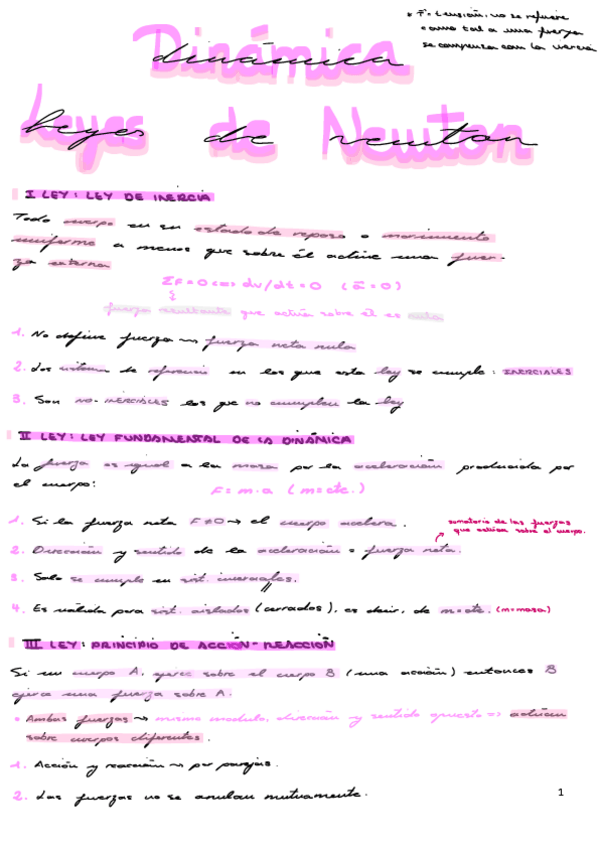 • F: tensión: no se refiere
como tal a una fuerza
se compensa con la inercia
Dinámica
dinámica
Leyes de Newton
leyes de newton
I LEY: LEY DE INERCIA
Todo cuerpo en su estado de reposo o movimiento
uniforme a menos que sobre él actúe una fuer-
za externa
ΣF = 0 dv/dt = 0 (a = 0)
fuerza resultante que actúa sobre él es nula
1. No define fuerza ~> fuerza neta nula
2. Los sistemas de referencia en los que esta ley se cumple: INERCIALES
3. Son NO-INERCIALES los que no cumplen la ley
II LEY: LEY FUNDAMENTAL DE LA DINÁMICA
La fuerza es igual a la masa por la aceleración producida por
el cuerpo: F = m·a (m = cte.)
1. Si la fuerza neta F≠0 → el cuerpo acelera.
sumatorio de las fuerzas
que actúan sobre el cuerpo.
2. Dirección y sentido de la aceleración = fuerza neta.
3. Solo se cumple en sist. inerciales.
4. Es válida para sist. aislados (cerrados), es decir, de m=cte. (m=masa)
III LEY: PRINCIPIO DE ACCIÓN-REACCIÓN
Si un cuerpo A, ejerce sobre el cuerpo B (una acción) entonces B
ejerce una fuerza sobre A.
• Ambas fuerzas ~> mismo modulo, dirección y sentido opuesto => actúan
sobre cuerpos diferentes.
1. Acción y reacción ~> por parejas.
2. Las fuerzas no se anulan mutuamente.
1